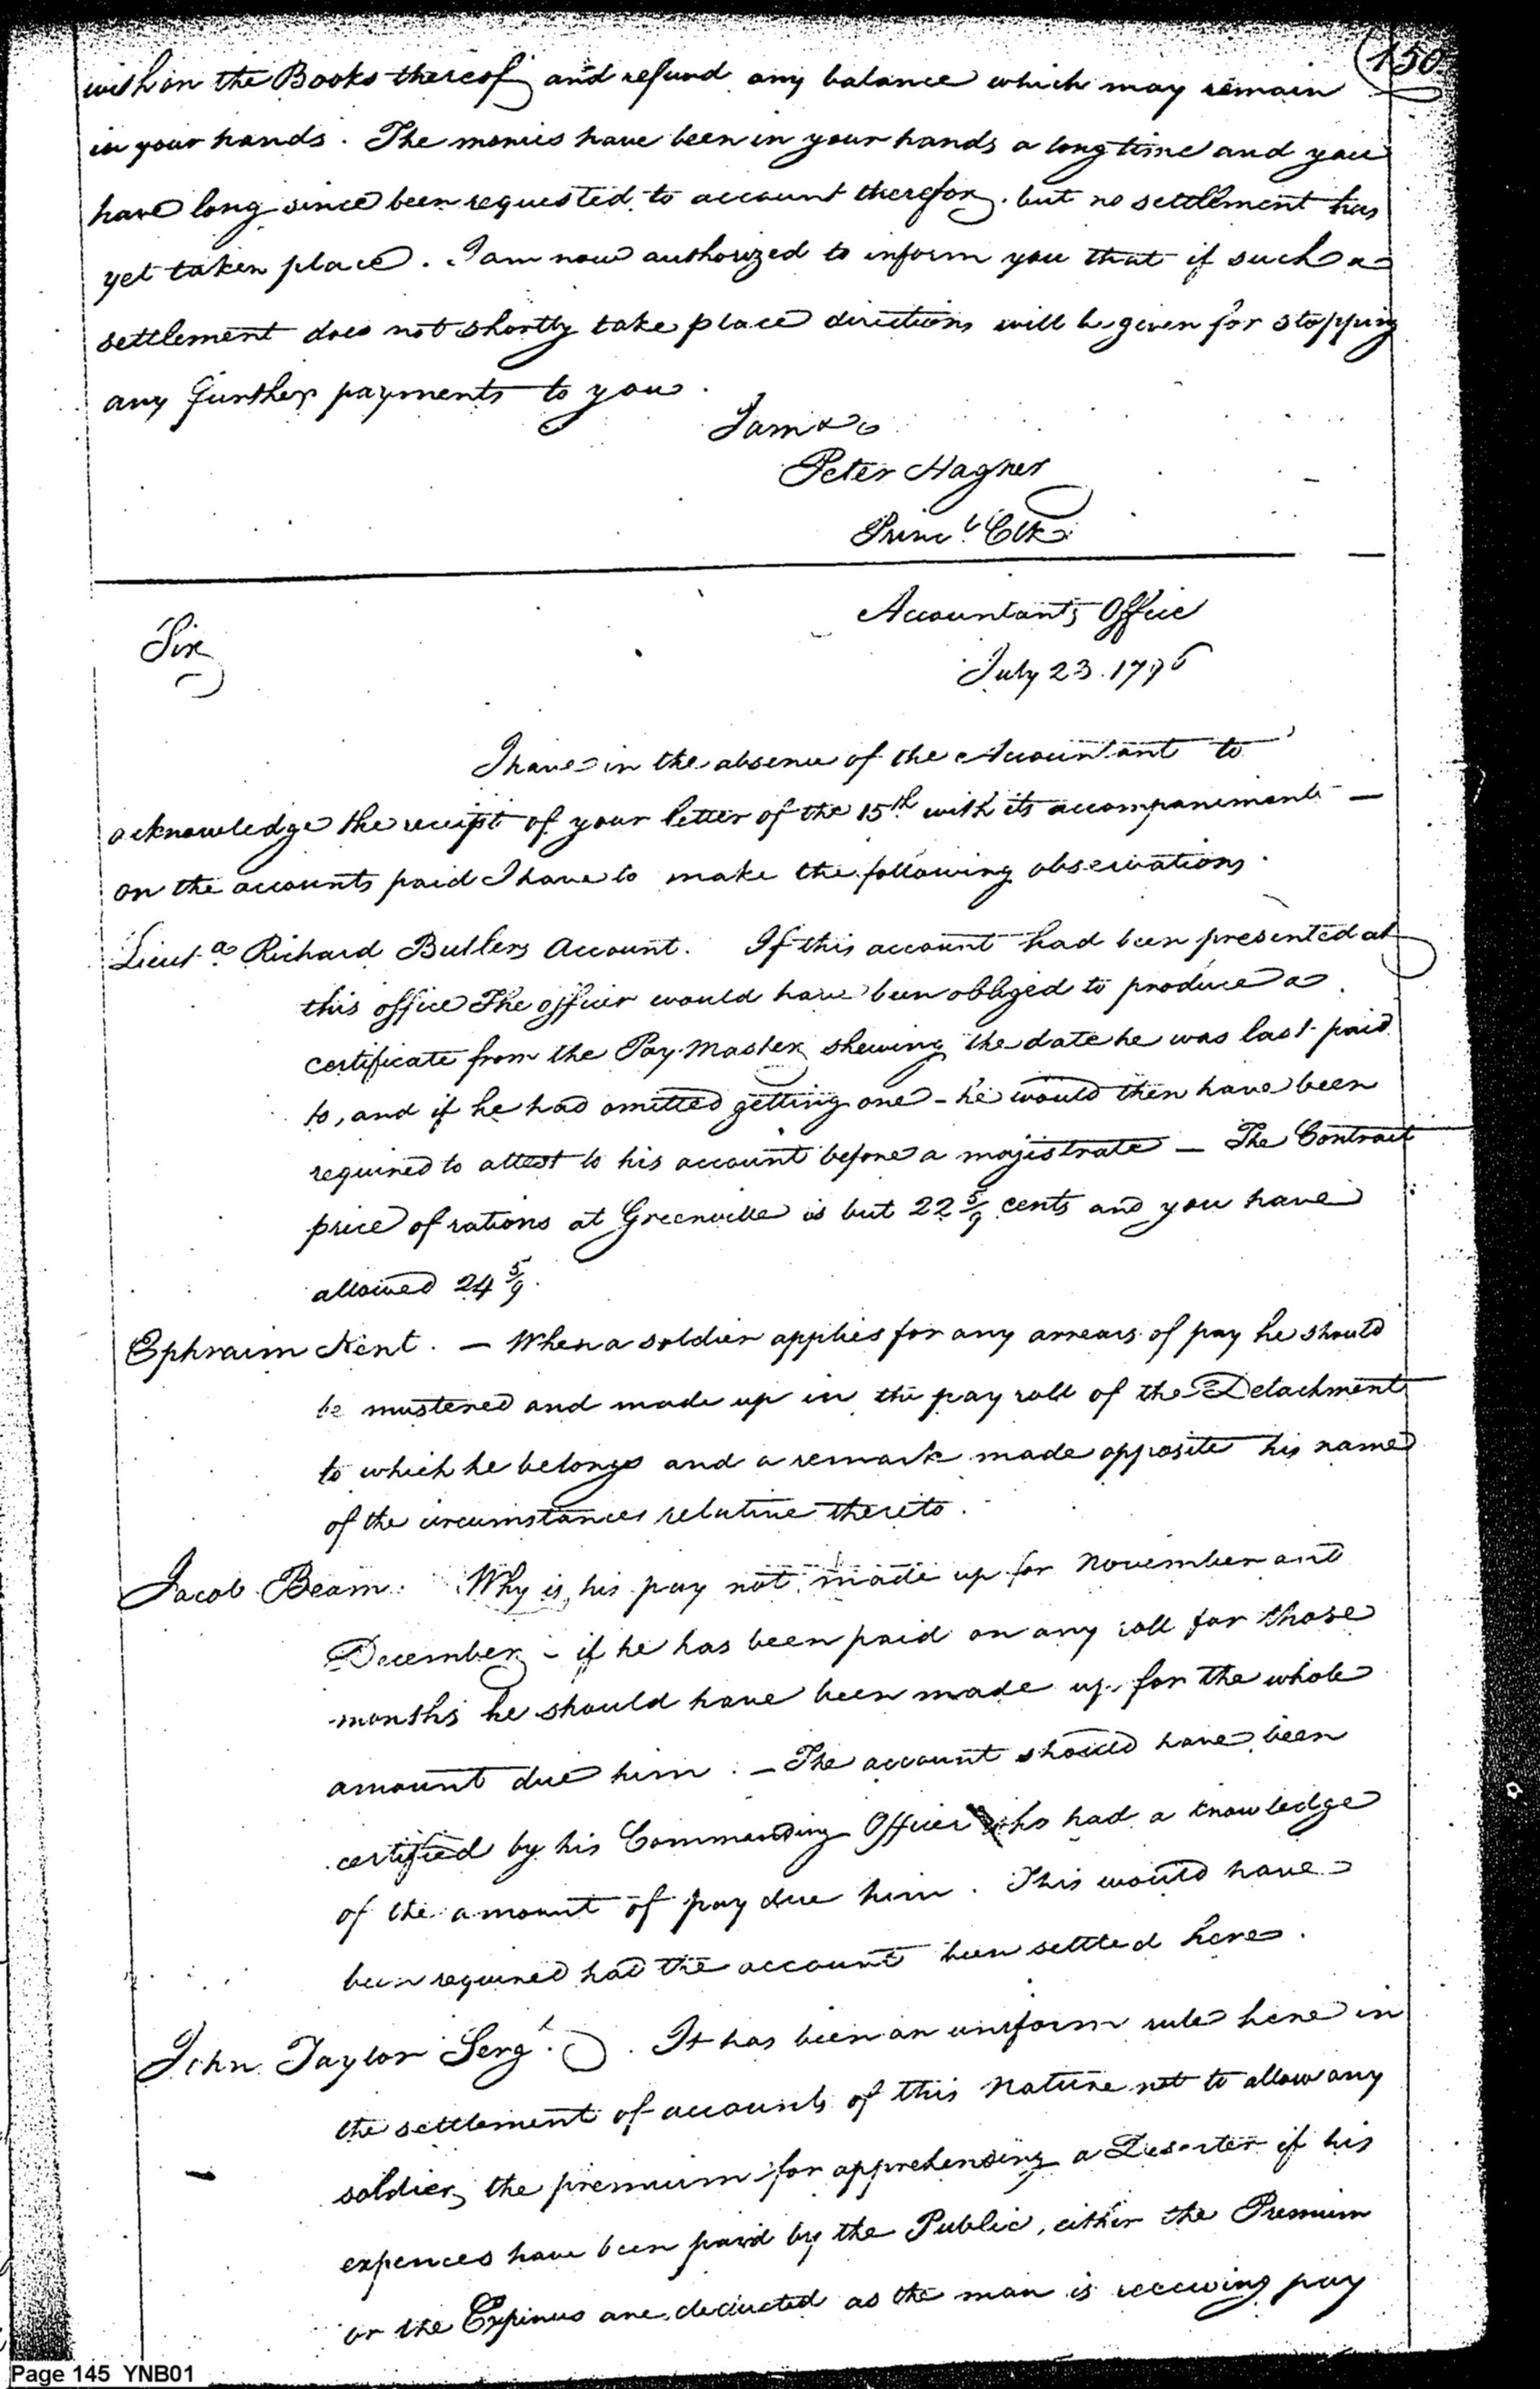 150
wish on the Books thereof and refund any balance which may remain
in your hands. The monies have been in your hands a long time and you
have long since been requested to account therefor, but no settlement has
yet taken place. I am now authorized to inform you that if such a
settlement does not shortly take place directions will be given for stopping
any further payments to you.
I am &c
Peter Hagner
Princl. Clk.
Accountants Office
Sir
July 23. 1796
I have in the absence of the Accountant to
acknowledge the receipt of your letter of the 15th with its accompaniments —
on the accounts paid I have to make the following observations.
Lieut. Richard Butlers Account. If this account had been presented at
this office The officer would have been obliged to produce a
certificate from the Pay Master shewing the date he was last paid
to, and if he had omitted getting one - he would then have been
required to attest to his account before a majistrate — The Contract
price of rations at Greenville is but 22 5/9 cents and you have
allowed 24 5/9.
Ephraim Kent. — When a soldier applies for any arrears of pay he should
be mustered and made up in the pay roll of the Detachment
to which he belongs and a remark made opposite his name
of the circumstances relative thereto.
Jacob Beam. Why is his pay not made up for November and
December - if he has been paid on any roll for those
months he should have been made up for the whole
amount due him. — The account should have been
certified by his Commanding Officer who had a knowledge
of the amount of pay due him. This would have
been required had the account been settled here.
John Taylor Sergt. It has been an uniform rule here in
the settlement of accounts of this nature not to allow any
soldier the premium for apprehending a Deserter if his
expences have been paid by the Public, either the Premium
or the Expences are deducted as the man is receiving pay
Page 145 YNB01